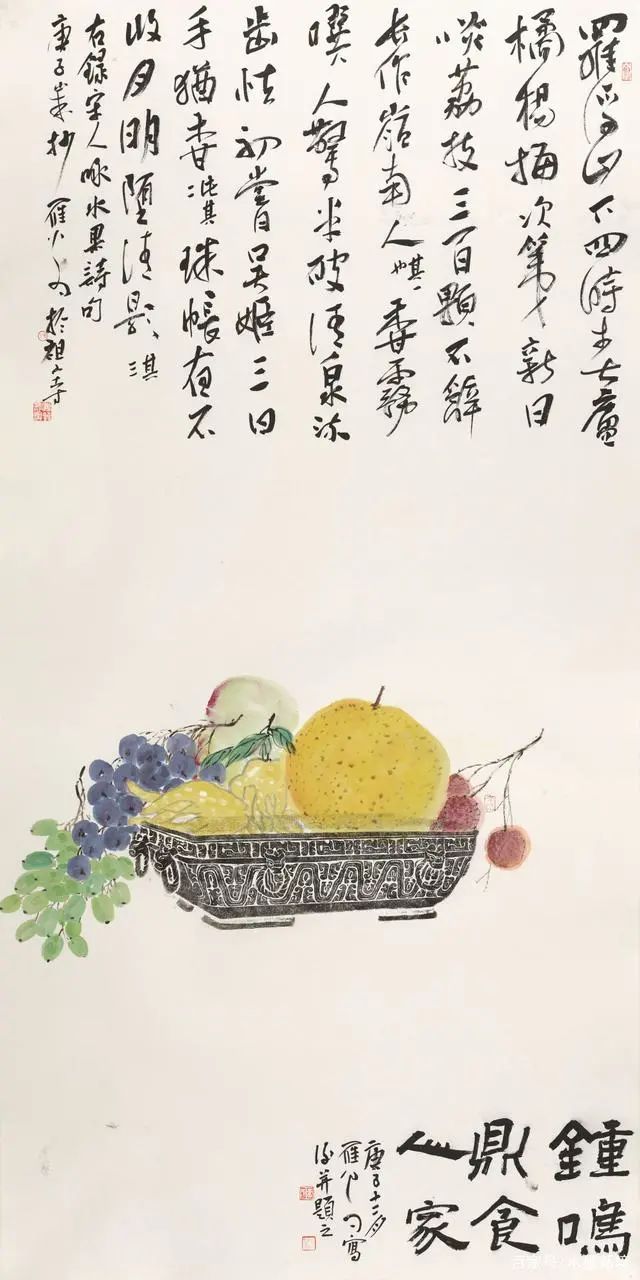 羅浮山下四時春盧
橘楊梅次第新日
啖荔枝三百顆不辭
長作嶺南人 其一 香霧
噀人驚半破清泉流
齒怯初嘗吳姬三日
手猶香 其二 珠帳夜不
收月明墮清影 其三
右錄宋人詠水果詩句
庚子歲抄 雁 於祖
鍾鳴
鼎食
人家
庚子十二月
雁 寫
并題之
百家号/